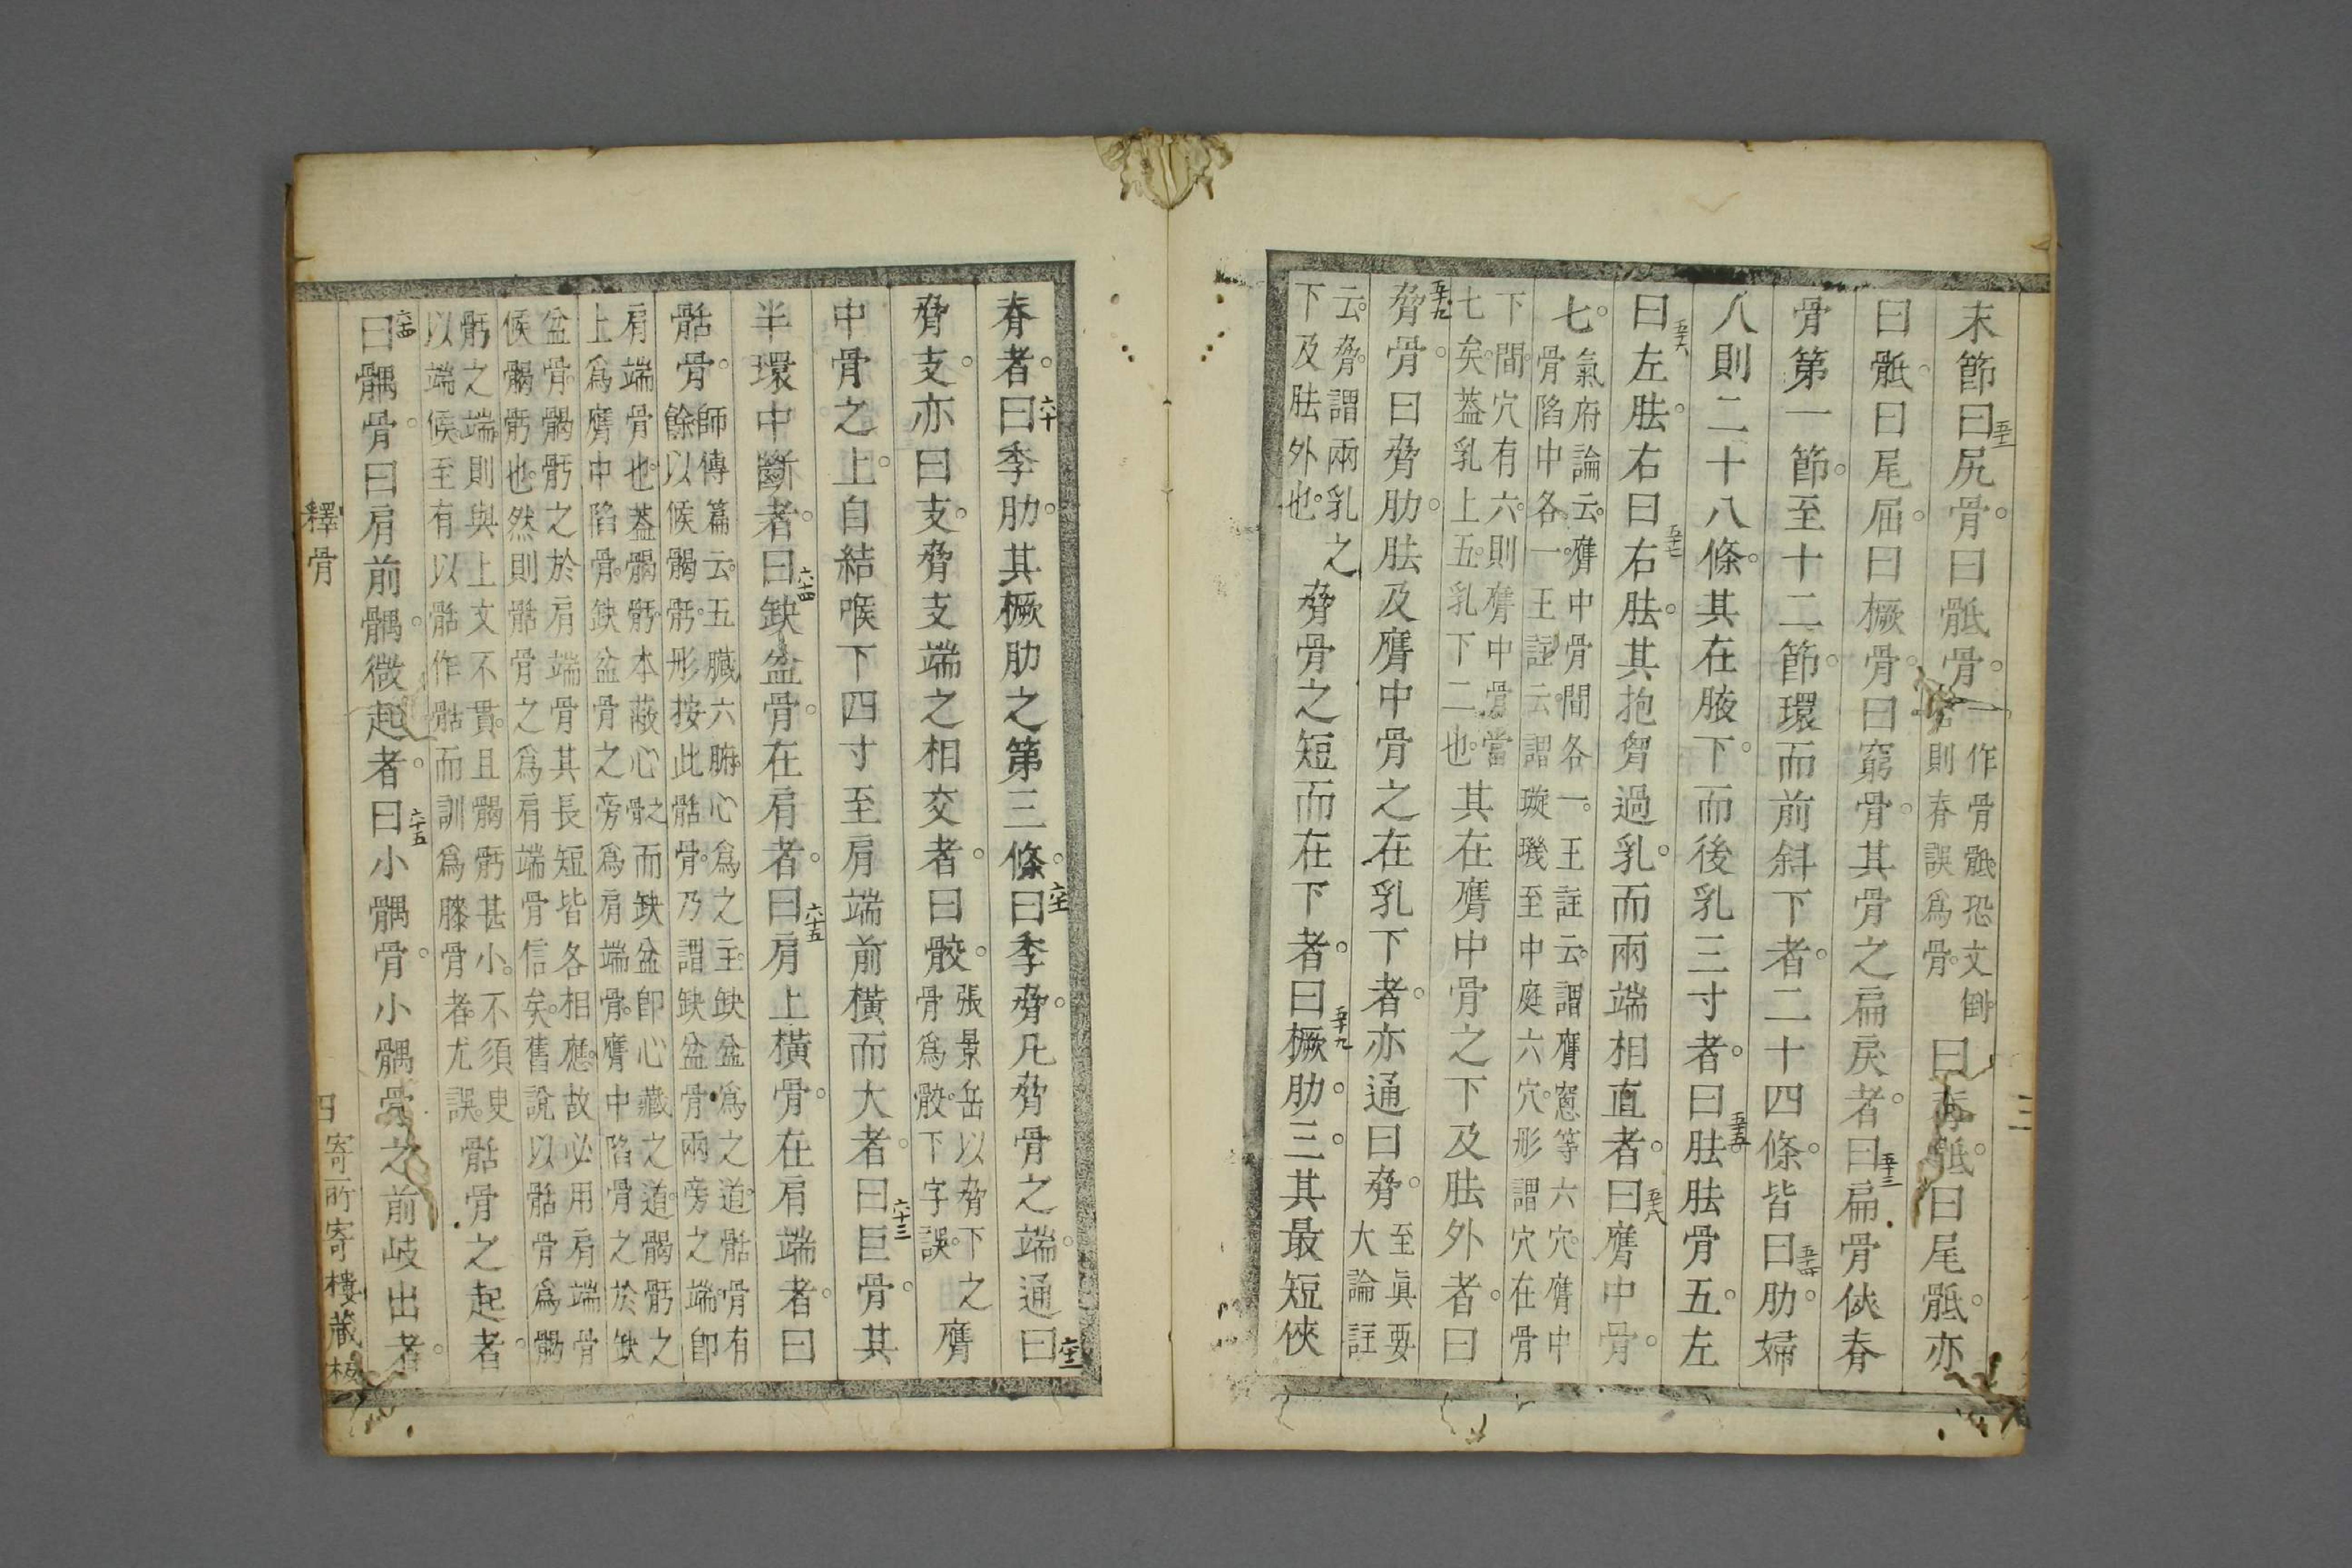 末節曰五十二尻骨曰骶骨一作骨骶恐文倒
則脊誤爲骨曰脊骶曰尾骶亦
曰骶曰尾屈曰橛骨曰窮骨其骨之扁戾者曰五十三扁骨俠脊
骨第一節至十二節環而前斜下者二十四條皆曰五十四肋婦
人則二十八條其在腋下而後乳三寸者曰五十五胠胠骨五左
曰五十六左胠右曰五十七右胠其抱胷過乳而兩端相直者曰五十八膺中骨
七氣府論云膺中骨間各一王註云謂膺窻等六穴膺中
骨陷中各一王註云謂璇璣至中庭六穴形謂穴在骨
下間穴有六則膺中骨當
七矣蓋乳上五乳下二也其在膺中骨之下及胠外者曰
脅骨曰脅肋胠及膺中骨之在乳下者亦通曰脅至眞要
大論註
云脅謂兩乳之
下及胠外也脅骨之短而在下者曰五十九橛肋三其最短俠
脊者曰六十季肋其橛肋之第三條曰六十一季脅凡脅骨之端通曰六十二
脅支亦曰支脅支端之相交者曰骹張景岳以脅下之
骨爲骹下字誤膺
中骨之上自結喉下四寸至肩端前橫而大者曰六十三巨骨其
半環中斷者曰六十四缺盆骨在肩者曰六十五肩上橫骨在肩端者曰
䯏骨師傳篇云五臟六腑心爲之主缺盆爲之道䯏骨有
餘以候𩩲骬形按此䯏骨乃謂缺盆骨兩旁之端卽
肩端骨也蓋𩩲骬本蔽心之骨而缺盆卽心藏之道𩩲骬之
上爲膺中陷骨缺盆骨之旁爲肩端骨膺中陷骨之於缺
盆骨𩩲骬之於肩端骨其長短皆各相應故必用肩端骨
候𩩲骬也然則䯏骨之爲肩端骨信矣舊說以䯏骨爲𩩲
骬之端則與上文不貫且𩩲骬甚小不須更
以端候至有以䯏作骷而訓爲膝骨者尤誤䯏骨之起者
曰髃骨曰肩前髃微起者曰六十五小髃骨小髃骨之前岐出者
釋骨
四寄所寄樓藏板